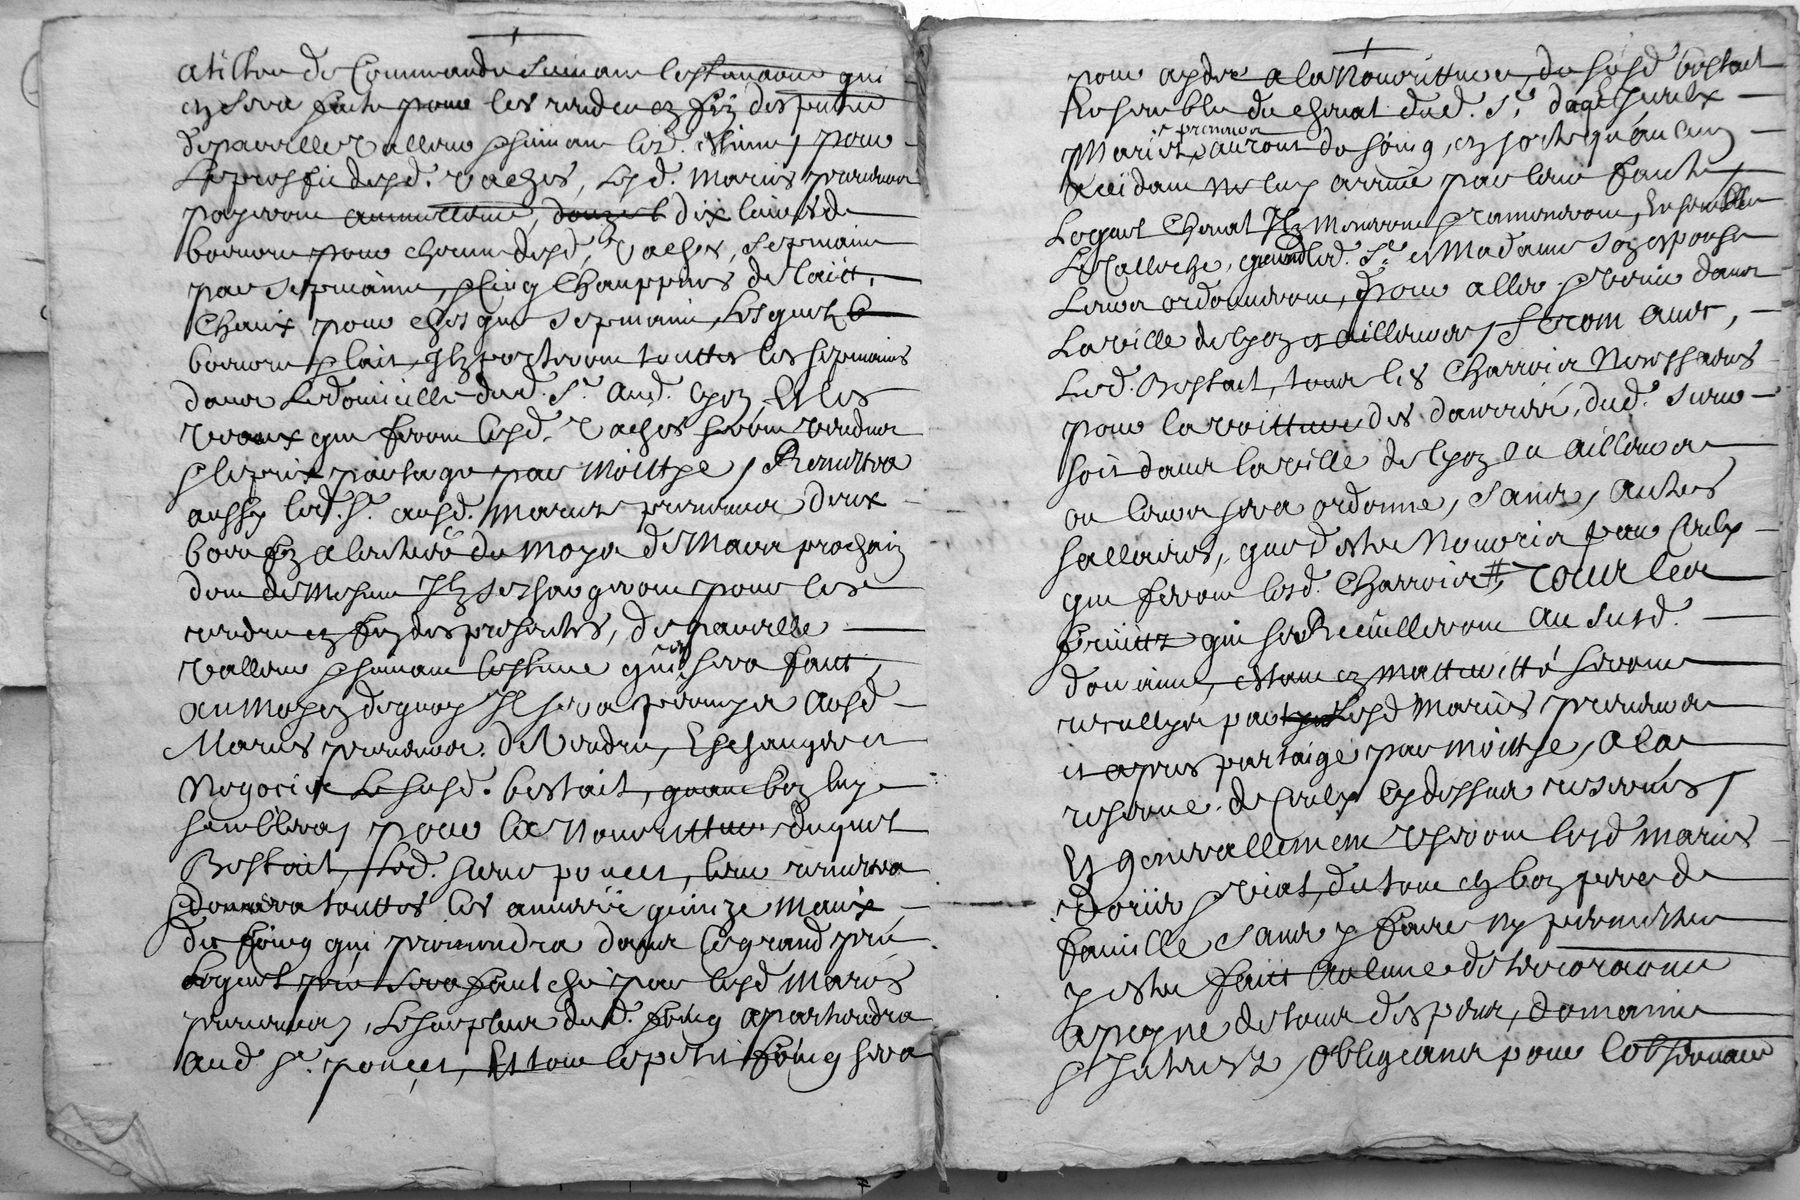 a tiltre de Commande suivant lestimaõn qui
en sera faite pour les rendre en fin des pñtes
de pareille valleur suivant lad. estime, pour
Le proffit desd. vaches, lesd. mariés preneurs
payeront annuellement, dix livres de
beurre pour chacune desd. vaches,
par sepmaine, cinq
pour chasque sepmaine, lesquelz
beurre & lait, ilz porteront touttes les sepmaines
dans le domicille dud. Sr. aud. lyon, Et les
veaux que feront lesd. vaches seront vendus
& le prix partagé par moittye, Remettra
aussy led. Sr. ausd. mariés preneurs deux
bœufz a la du moys de Mars prochain
dont de mesme Ilz se chargeront pour les
rendre en fin des presentes, de pareille
valleur suivant lestime quy en sera faict,
au moyen de quoy Il sera permis ausd.
Mariés preneurs de vendre, Eschanger et
Negocier le susd. bestail, quand bon luy
semblera, pour la nourritture duquel
Bestail, led. sieur poncet, leur remettra
touttes les années quinze
de foing qui prouiendra dans le grand pré
Lequel pré sera fauché par lesd. mariés
preneurs, Le surplus dud. foing apartiendra
aud. Sr. poncet, Et tout le petit foing sera
pour ayder a la Nourritture, du susd. bestail
Ensemble du cheval dud. Sr. duquel lesd.
Mariés preneurs auront de soing, en sorte qu'aucun
accidant ne luy arrive par leur faute,
Lequel cheval Ilz meneront & rameneront, Ensemble
La Calleche, quand led. Sr. et Madame son espouse
Leurs ordonneront, pour aller & venir dans
La ville de lyon et ailleurs, feront avec,
Led. Bestail, tous les Charrois Necessaires
pour la voitture des danrées, dud. sieur
soit dans la ville de lyon ou ailleurs
ou leurs sera ordonné, sans, autres
sallaires, que destre Nourris
que feront lesd. Charrois # Tous les
fruittz qui se Recueilleront au susd.
domaine, estant en matturitté seront
recullys par lesd mariés preneurs
et apres partaigé par moittye, a la
reserve de ceulx cy dessus reservés,
Et generallement useront lesd mariés
du tout en bon pere de
famille sans y faire ny permettre
y estre faict aulcune detterioraõne
a peyne de tous despens, domaiges
& Interestz, obligeants pour lobservaõn